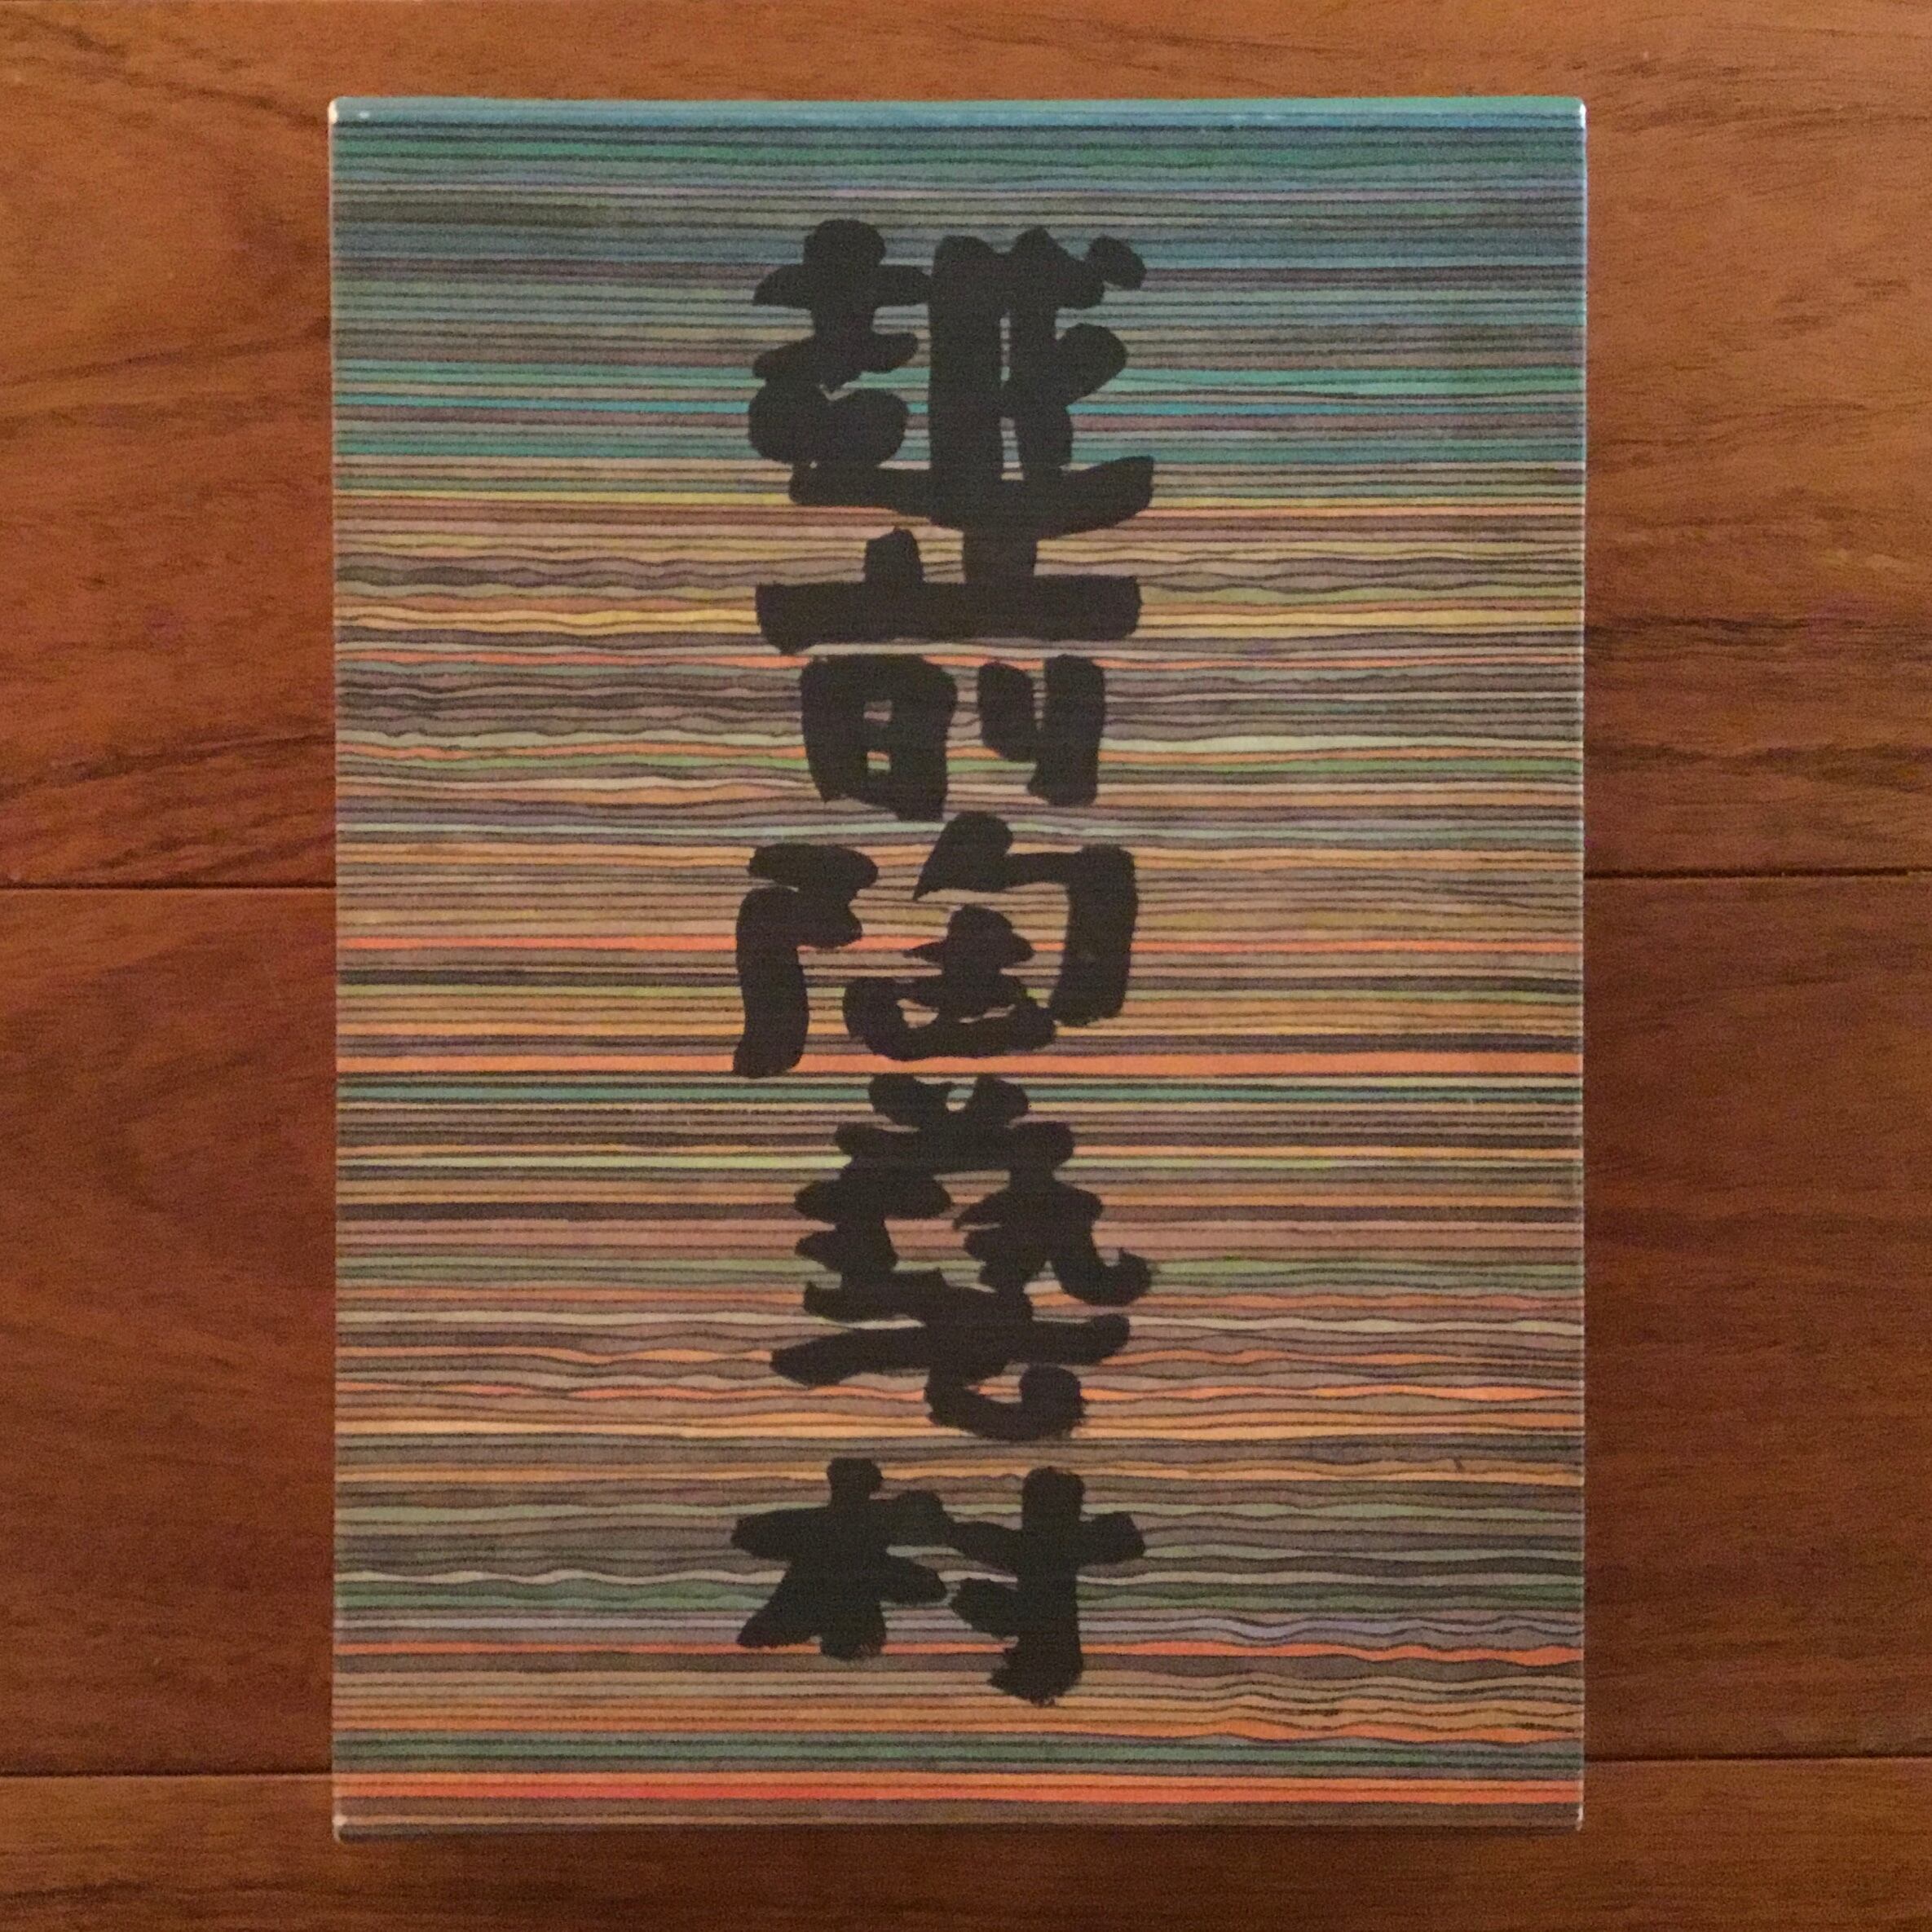 越前陶藝村